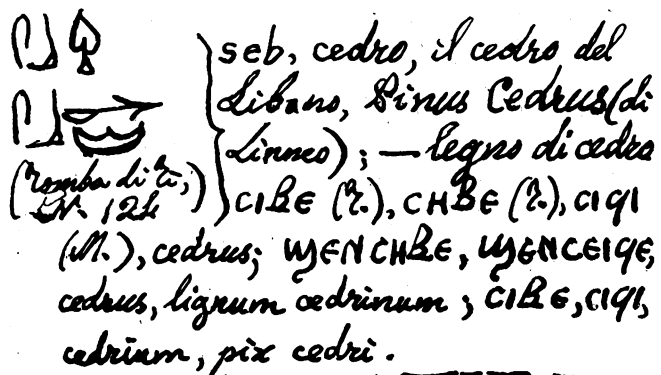 seb, cedro, il cedro del
Libano, Pinus Cedrus (di
Linneo); — legno di cedro
(Tomba di Ti,
N. 124)
ⲥⲓⲃⲉ (T.), ⲥⲏⲃⲉ (T.), ⲥⲓϥⲓ
(M.), cedrus; ϣⲉⲛⲥⲏⲃⲉ, ϣⲉⲛⲥⲉⲓϥⲉ,
cedrus, lignum cedrinum; ⲥⲓⲃⲉ, ⲥⲓϥⲓ,
cedrium, pix cedri.